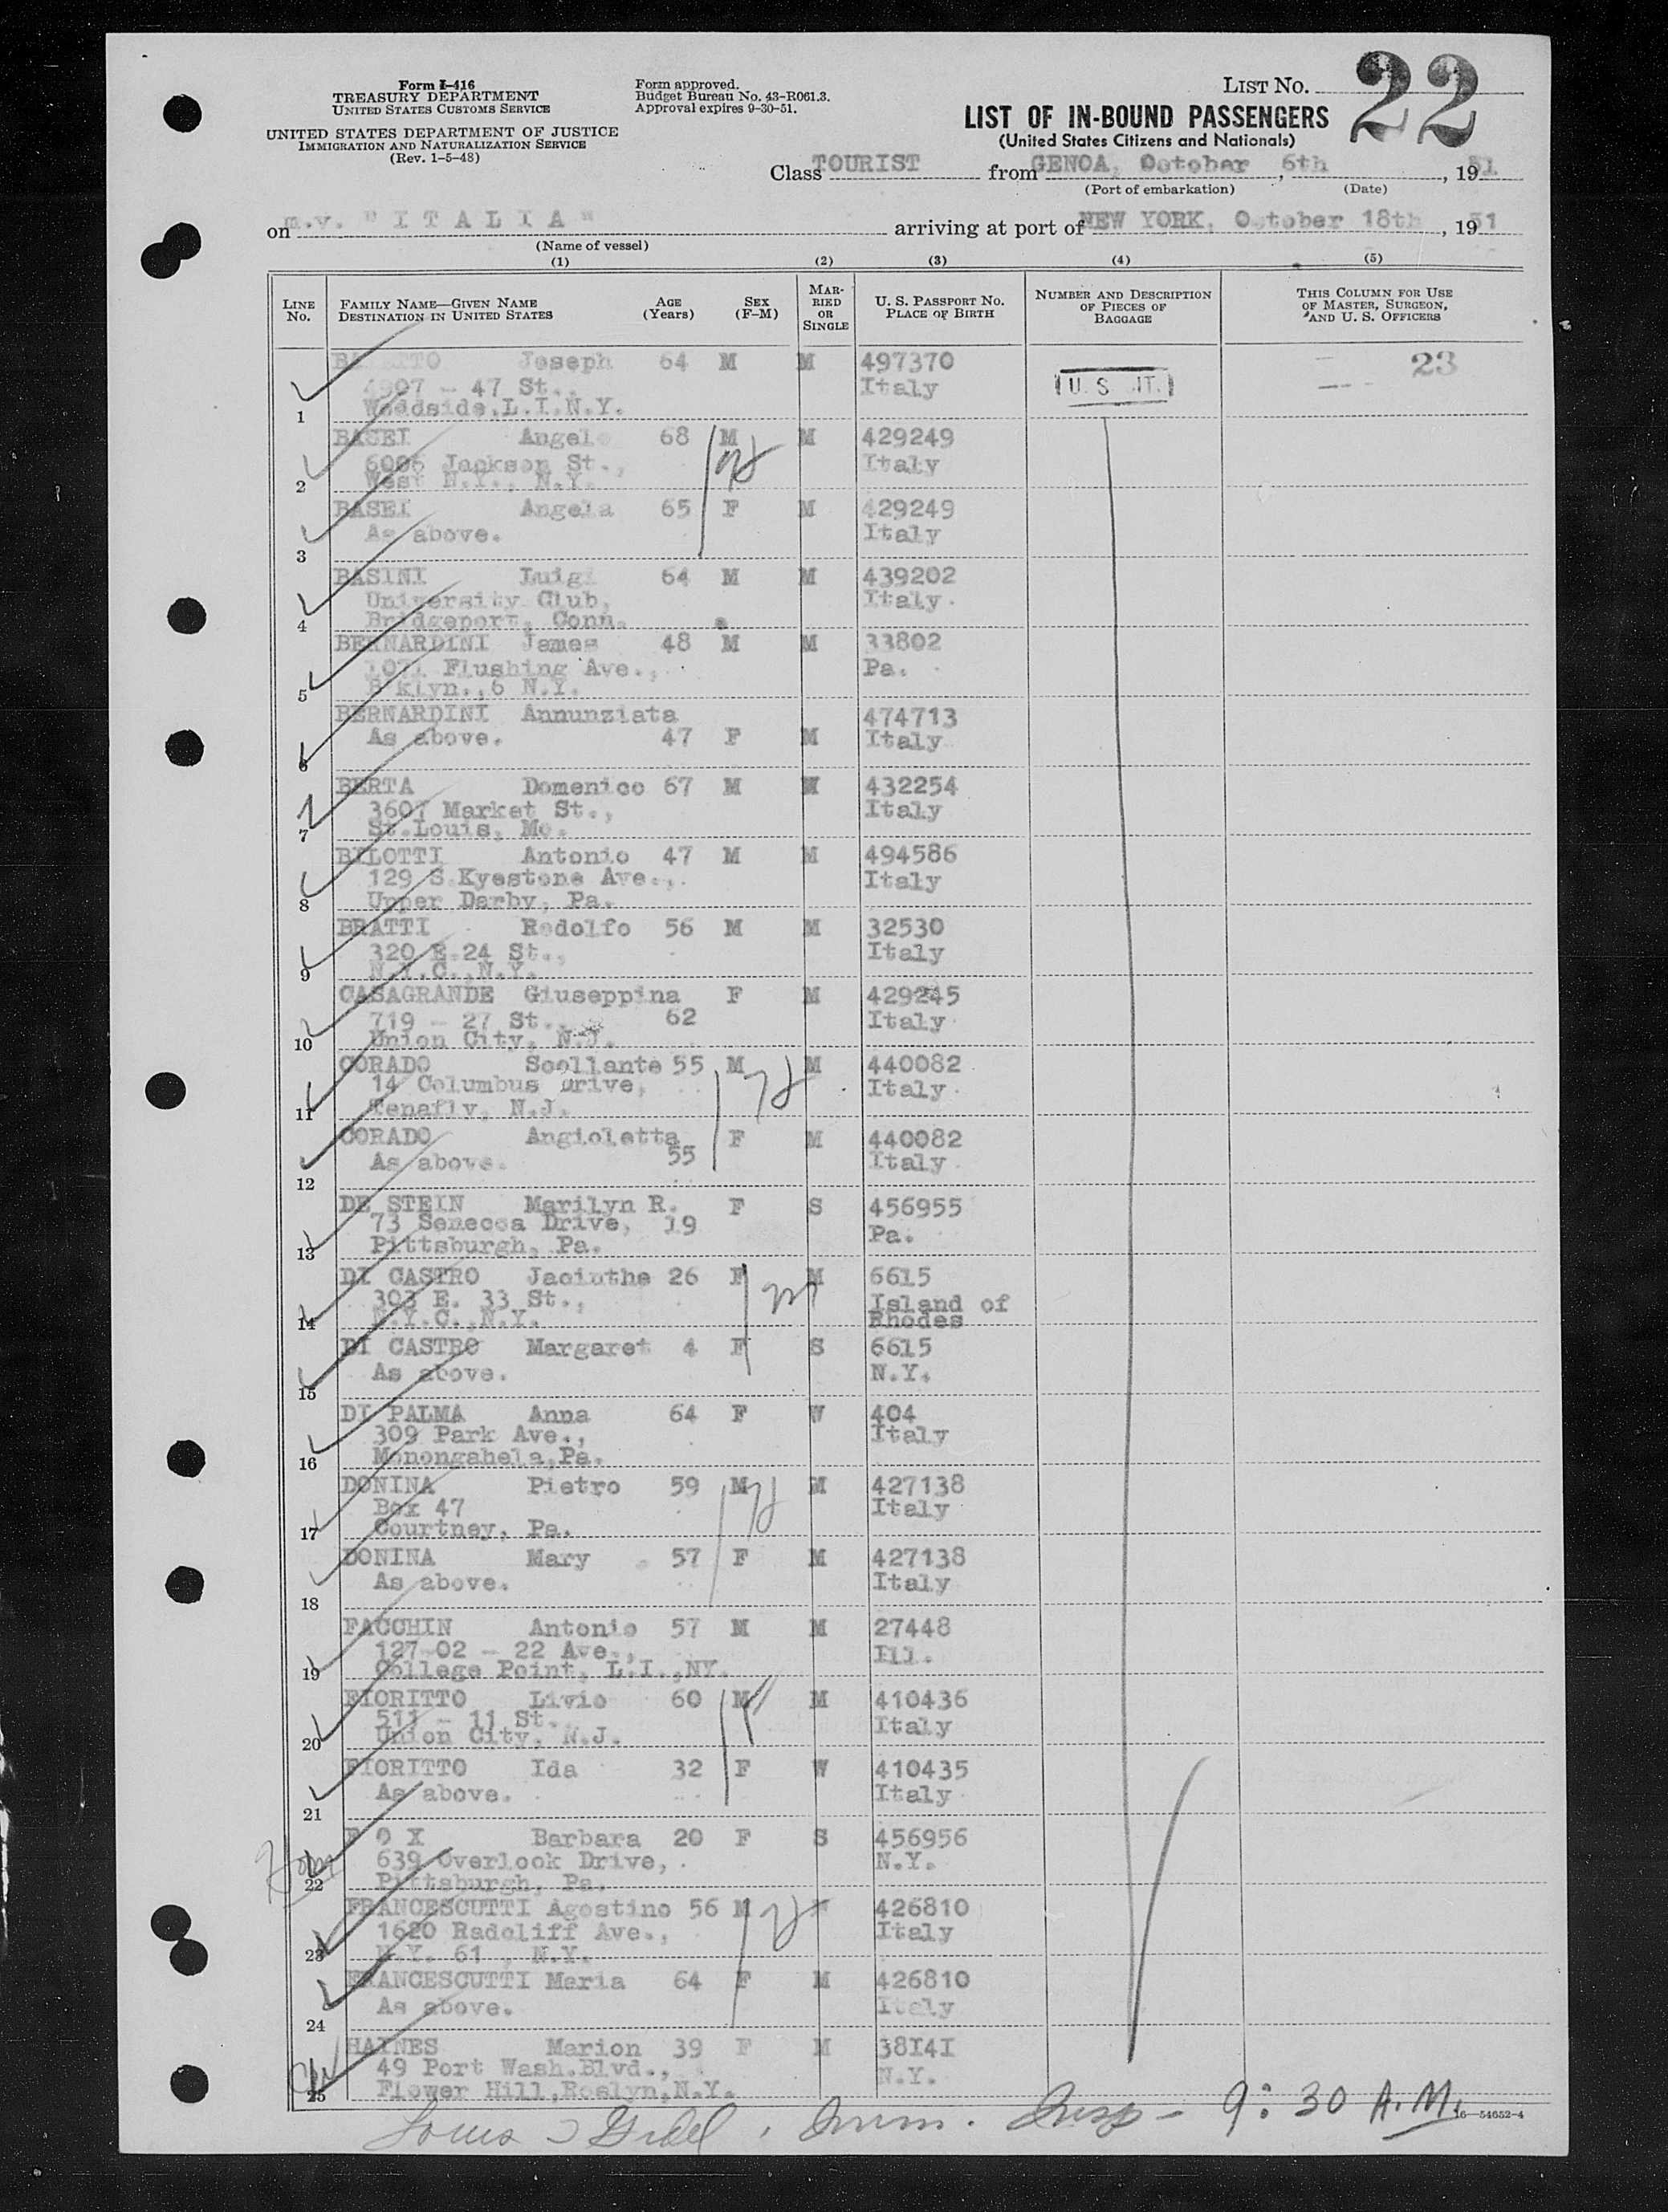 Form I-416
TREASURY DEPARTMENT
UNITED STATES CUSTOMS SERVICE
UNITED STATES DEPARTMENT OF JUSTICE
IMMIGRATION AND NATURALIZATION SERVICE
(Rev. 1-5-48)
Form approved.
Budget Bureau No. 43-R061.3.
Approval expires 9-30-51.
LIST NO. 22
LIST OF IN-BOUND PASSENGERS
(United States Citizens and Nationals)
Class TOURIST from GENOA, October 6th, 1951
(Port of embarkation) (Date)
on m.v. "ITALIA" arriving at port of NEW YORK, October 18th, 1951
(Name of vessel)
(1) (2) (3) (4) (5)
LINE No. FAMILY NAME—GIVEN NAME DESTINATION IN UNITED STATES AGE (Years) SEX (F-M) MARRIED OR SINGLE U. S. PASSPORT NO. PLACE OF BIRTH NUMBER AND DESCRIPTION OF PIECES OF BAGGAGE THIS COLUMN FOR USE OF MASTER, SURGEON, AND U. S. OFFICERS
Joseph 64 M M 497370 23
4907 - 47 St., Italy U. S. IT.
1 Woodside,L.I.N.Y.
BASEI Angelo 68 M M 429249
6006 Jackson St., Italy
2 West N.Y., N.Y.
BASEI Angela 65 F M 429249
As above. Italy
3
BASINI Luigi 64 M M 439202
University Club, Italy.
4 Bridgeport, Conn.
BERNARDINI James 48 M M 33802
1071 Flushing Ave., Pa.
5 B'klyn.,6 N.Y.
BERNARDINI Annunziata 474713
As above. 47 F M Italy
6
BERTA Domenico 67 M W 432254
3607 Market St., Italy
7 St.Louis, Mo.
BILOTTI Antonio 47 M M 494586
129 S.Kyestone Ave., Italy
8 Upper Darby, Pa.
BRATTI Rodolfo 56 M M 32530
320 E.24 St., Italy
9 N.Y.C.,N.Y.
CASAGRANDE Giuseppina F M 429245
719 - 27 St., 62 Italy
10 Union City, N.J.
CORADO Scollante 55 M M 440082
14 Columbus Drive, Italy
11 Tenafly, N.J.
CORADO Angioletta F M 440082
As above. 55 Italy
12
DE STEIN Marilyn R. F S 456955
73 Senecca Drive, 19 Pa.
13 Pittsburgh, Pa.
DI CASTRO Jacinthe 26 F M 6615
303 E. 33 St., Island of
14 N.Y.C.,N.Y. Rhodes
DI CASTRO Margaret 4 F S 6615
As above. N.Y.
15
DI PALMA Anna 64 F W 404
309 Park Ave., Italy
16 Monongahela,Pa.
DONINA Pietro 59 M M 427138
Box 47 Italy
17 Courtney, Pa.
DONINA Mary 57 F M 427138
As above. Italy
18
FACCHIN Antonio 57 M M 27448
127-02 - 22 Ave., Ill.
19 College Point, L.I.,NY.
FIORITTO Livio 60 M M 410436
511 - 11 St. Italy
20 Union City, N.J.
FIORITTO Ida 32 F W 410435
As above. Italy
21
F O X Barbara 20 F S 456956
639 Overlook Drive, N.Y.
22 Pittsburgh, Pa.
FRANCESCUTTI Agostino 56 M 426810
1620 Radcliff Ave., Italy
23 N.Y. 61, N.Y.
FRANCESCUTTI Maria 64 F M 426810
As above. Italy
24
HAINES Marion 39 F M 38141
49 Port Wash.Blvd., N.Y.
25 Flower Hill,Roslyn,N.Y.
Imm. Insp - 9:30 A.M.
16-54652-4